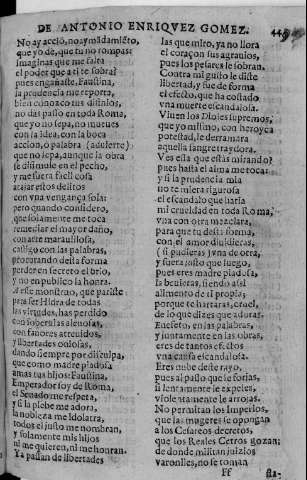 DE ANTONIO ENRIQVEZ GOMEZ.
No ay acciō, no ay mādamiēto,
que yo de, que tu no rompas
imaginas que me falta
el poder que a ti te sobra?
pues engañaste, Faustina,
la prudencia me reporta,
bien conozco tus disinios,
no das passo en toda Roma,
que yo no sepa, no mueues
con la idea, con la boca
accion, ò palabra (adultero)
que no sepa, aunque la obra
se dissimule en el pecho,
y me fuera facil cosa
atajar estos delitos
con vna vengança sola:
pero quando considero,
que solamente me toca
remediar el mayor daño,
con arte marauillosa,
castigo con las palabras,
procurando desta forma
perder en secreto el brio,
y no en publico la honra.
A este monstruo, que pariste
para ser Hidra de todas
las virtudes, has perdido
con soberuias aleuosas,
con fauores atreuidos,
y libertades ociosas,
dando siempre por disculpa,
que como madre piadosa
amas tus hijos: Faustina,
Emperador soy de Roma,
el Senado me respeta,
y si la plebe me adora,
la nobleza me Idolatra,
todos el justo me nombran,
y solamente mis hijos
ni me quieren, ni me honran.
Ya passan de libertades
las que miro, ya no llora
el coraçon sus agrauios,
pues los pesares le sobran.
Contra mi gusto le diste
libertad, y fue de forma
el efecto, que ha costado
vna muerte escandalosa.
Viuen los Dioses supremos,
que yo mismo, con heroyca
potestad, le derramara
aquella sangre traydora.
Ves esta que estàs mirando?
pues hasta el alma me toca:
y si la prudencia mia
no te miera rigurosa
el escandalo que haria
mi crueldad en toda Roma,
vna con otra mezclara,
para que tu desta forma,
con el amor diuidieras,
(si pudieras) vna de otra,
y fuera justo que luego,
pues eres madre piadosa,
la beuieras, siendo assi
alimento de si propia,
porque te hartaras, cruel,
de lo que dizes que adoras.
En efeto, en las palabras,
y juntamente en las obras,
eres de tantos efectos
vna causa escandalosa.
Eres nube deste rayo,
pues al passo que le forjas,
si lentamente le expeles,
violentamente le arrojas.
No permitan los Imperios,
que las mugeres se opongan
a los Cesareos decretos,
que los Reales Cetros gozan;
de donde militan juizios
varoniles, no se toman
Ff
sta-